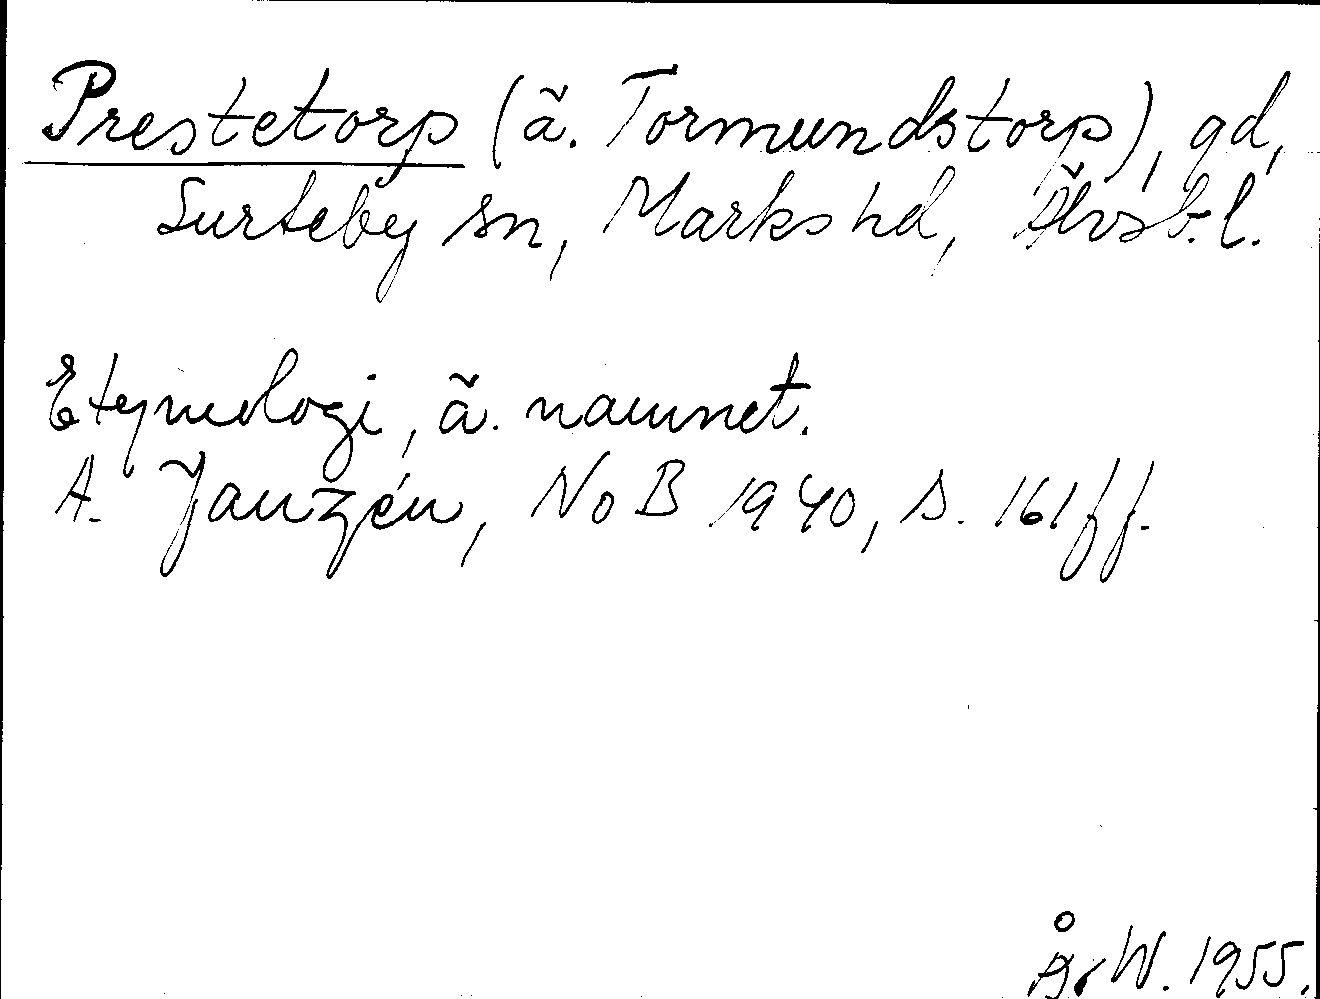 Prestetorp (ä. Tormundstorp), gd,
Surteby sn, Marks hd, Älvsb. l.
Etymologi, ä. namnet.
A. Janzén, NoB 1940, s. 161 ff.
W. 1955.